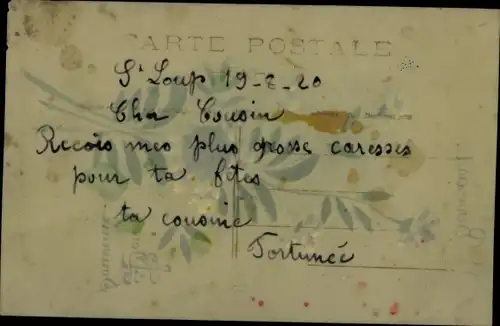 CARTE POSTALE
St Loup 19-2-20
Cher Cousin
Recois mes plus grosse caresses
pour ta fêtes
ta cousine
Fortuneé